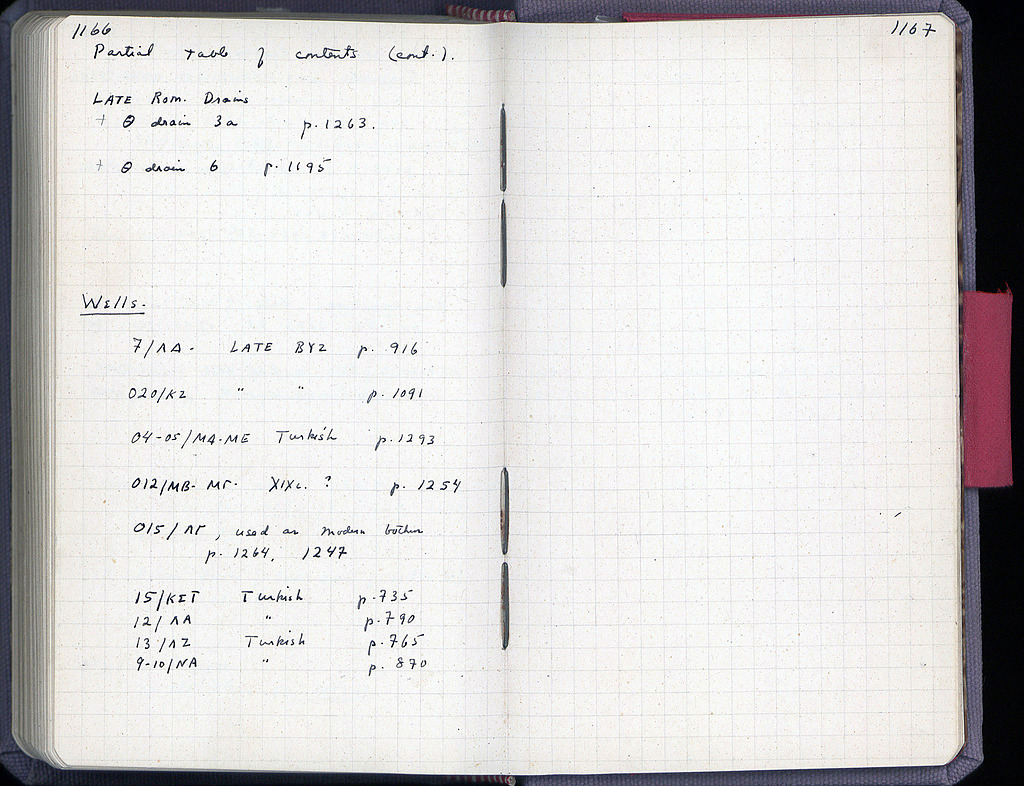 1166
Partial table of contents (cont.).
LATE Rom. Drains
+ Θ drain 3a p. 1263.
+ Θ drain 6 p. 1195
Wells.
7/ΛΔ. LATE BYZ p. 916
020/ΚΖ " " p. 1091
04-05/ΜΔ-ΜΕ Turkish p. 1293
012/ΜΒ-ΜΓ. XIXc. ? p. 1254
015/ΛΓ, used as modern bothros
p. 1264, 1247
15/ΚΣΤ Turkish p. 735
12/ΛΑ " p. 790
13/ΛΖ Turkish p. 765
9-10/ΝΑ " p. 870
1167